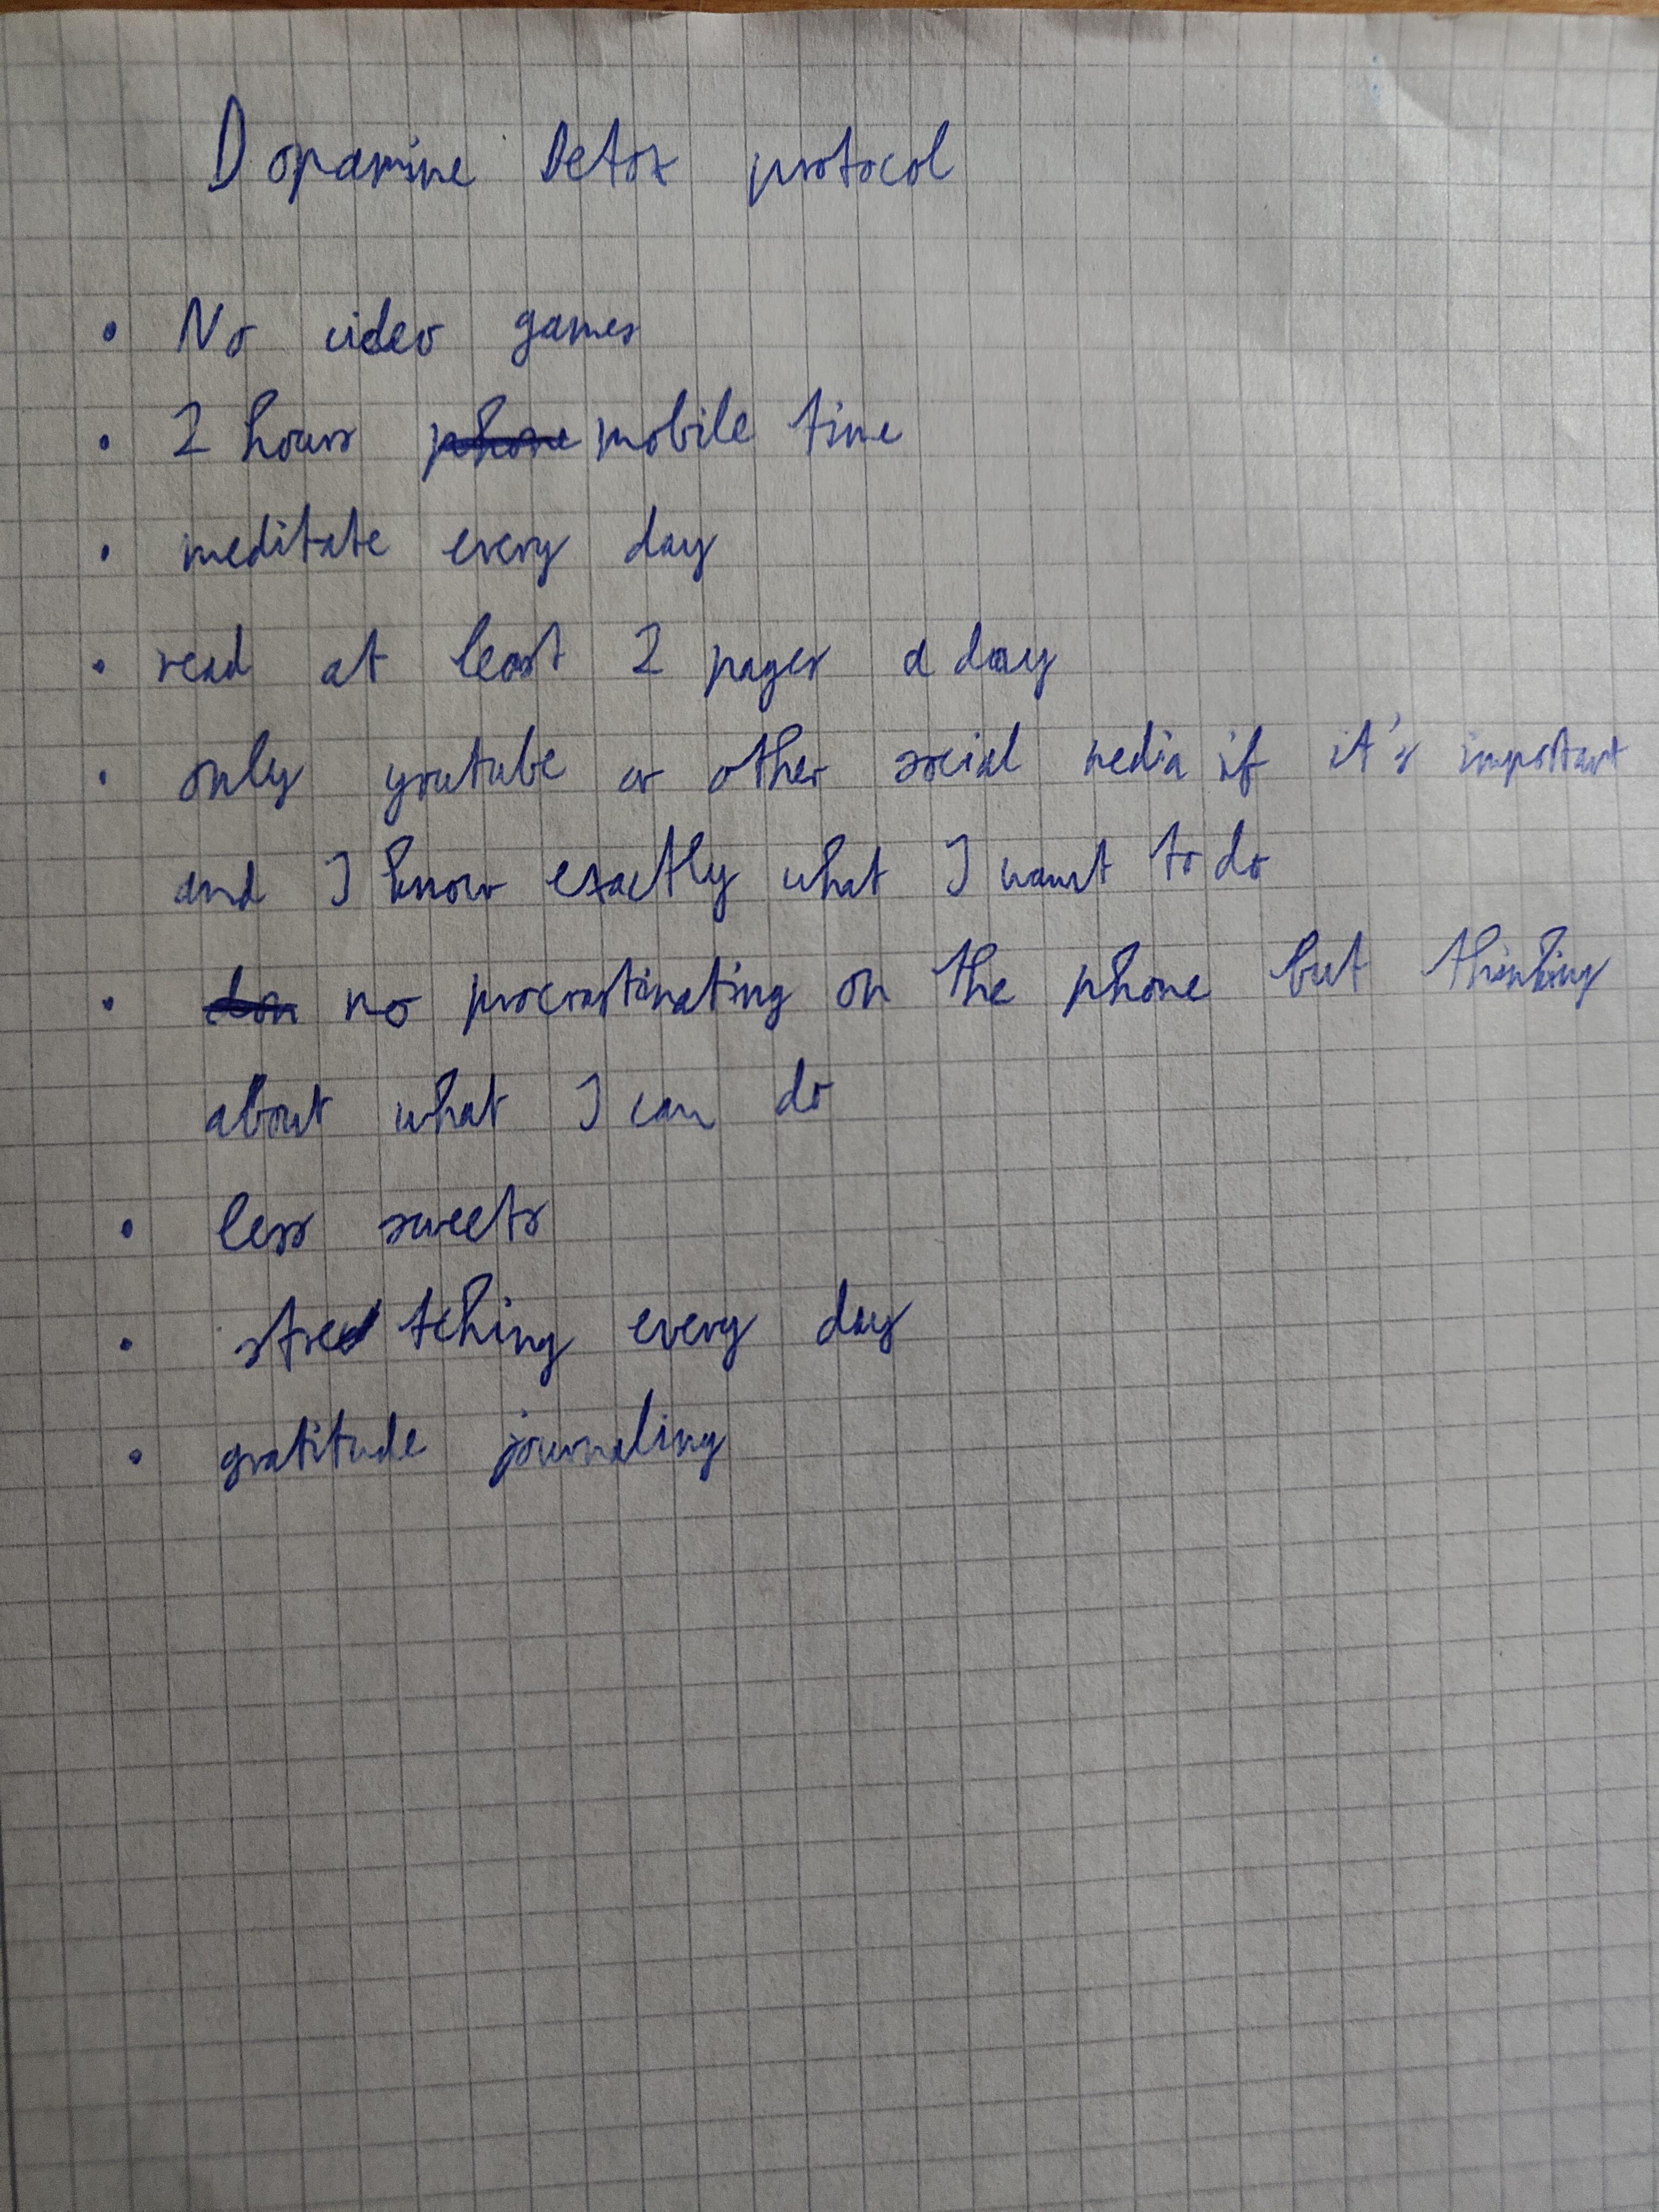 Dopamine Detox protocol
• No video games
• 2 hours phone mobile time
• meditate every day
• read at least 2 pages a day
• only youtube or other social media if it's important
and I know exactly what I want to do
• don no procrastinating on the phone but thinking
about what I can do
• less sweets
• stretching every day
• gratitude journaling